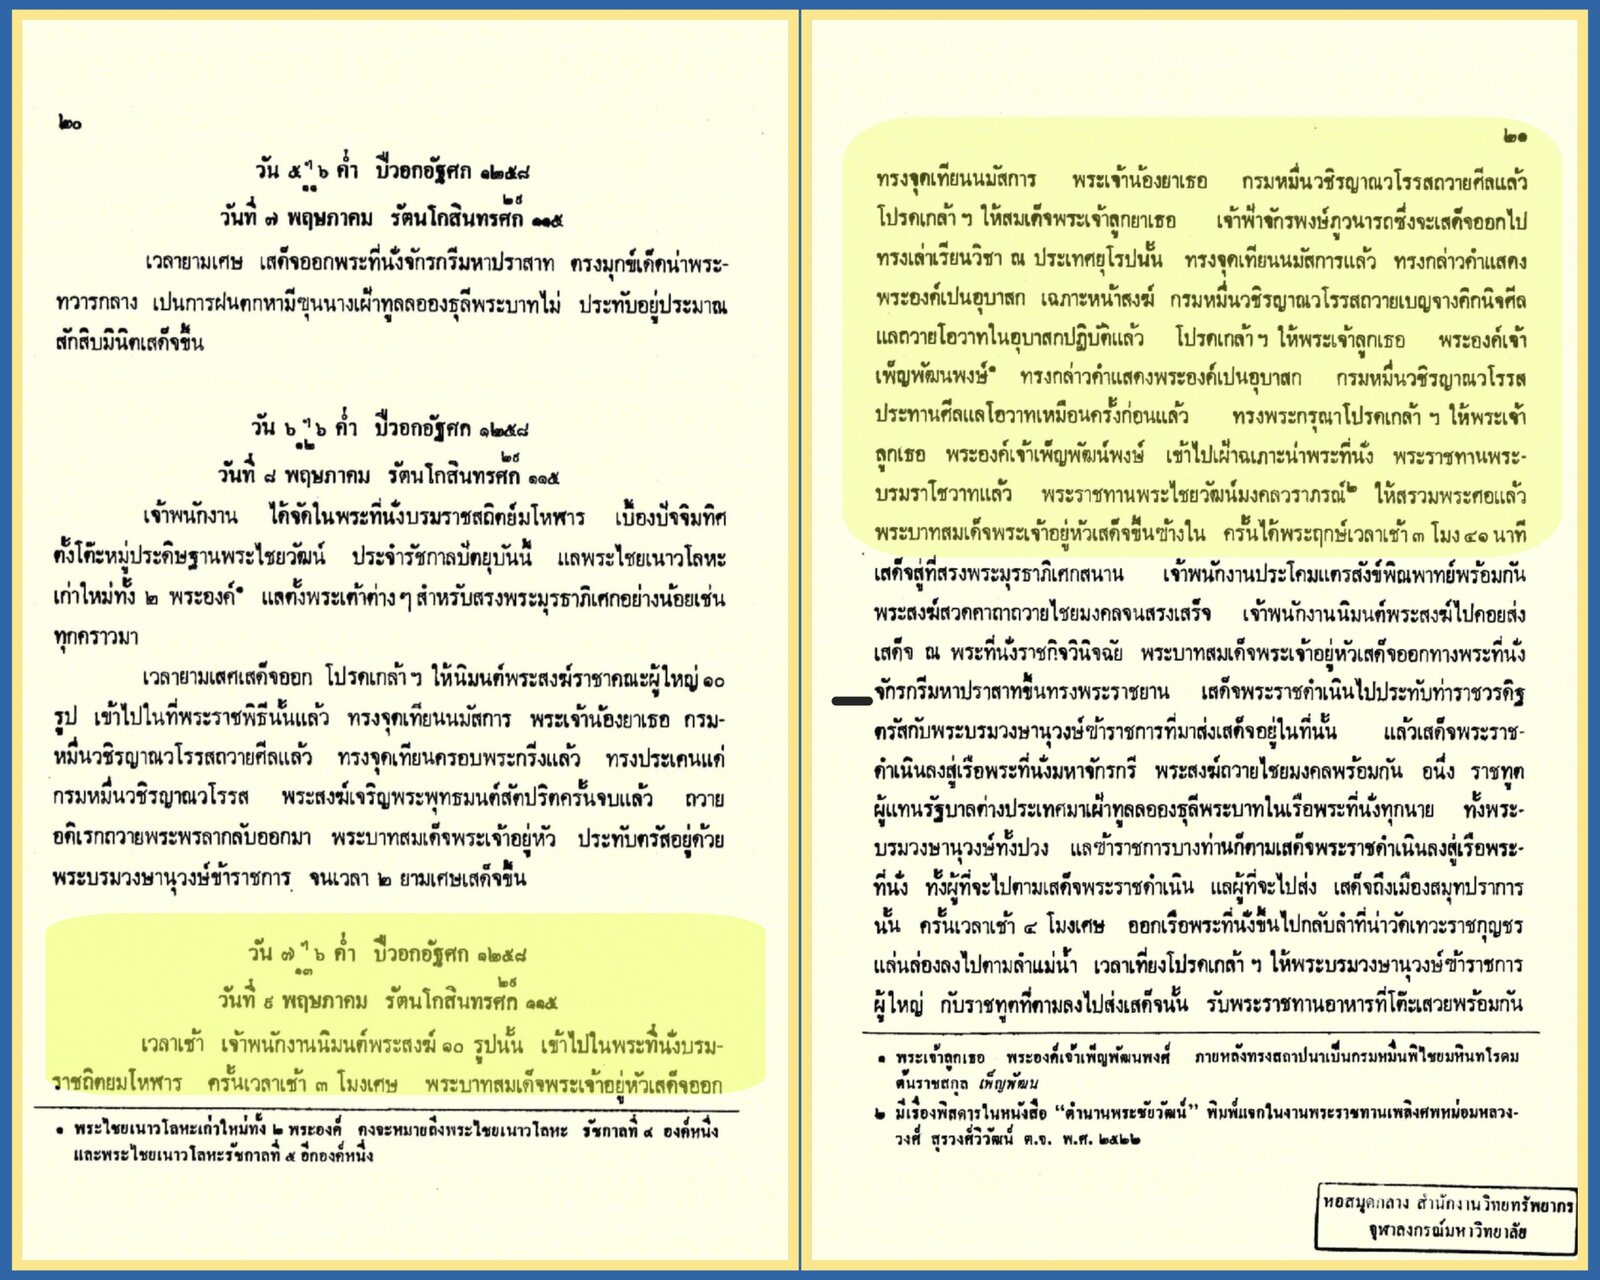 ๒๐
วัน ๕ ๑ฯ ๖ ค่ำ ปีวอกอัฐศก ๑๒๕๘
๑๑
๒๙
วันที่ ๗ พฤษภาคม รัตนโกสินทรศก ๑๑๕
เวลายามเศษ เสด็จออกพระที่นั่งจักรกรีมหาปราสาท ตรงมุกข์เด็ดน่าพระ-
ทวารกลาง เปนการฝนตกหามีขุนนางเฝ้าทูลลอองธุลีพระบาทไม่ ประทับอยู่ประมาณ
สักสิบมินิตเสด็จขึ้น
วัน ๖ ๑ฯ ๖ ค่ำ ปีวอกอัฐศก ๑๒๕๘
๑๒
๒๙
วันที่ ๘ พฤษภาคม รัตนโกสินทรศก ๑๑๕
เจ้าพนักงาน ได้จัดในพระที่นั่งบรมราชสถิตย์มโหฬาร เบื้องปัจจิมทิศ
ตั้งโต๊ะหมู่ประดิษฐานพระไชยวัฒน์ ประจำรัชกาลปัตยุบันนี้ แลพระไชยเนาวโลหะ
เก่าใหม่ทั้ง ๒ พระองค์๑ แลตั้งพระเต้าต่าง ๆ สำหรับสรงพระมุรธาภิเศกอย่างน้อยเช่น
ทุกคราวมา
เวลายามเสศเสด็จออก โปรดเกล้า ฯ ให้นิมนต์พระสงฆ์ราชาคณะผู้ใหญ่ ๑๐
รูป เข้าไปในที่พระราชพิธีนั้นแล้ว ทรงจุดเทียนนมัสการ พระเจ้าน้องยาเธอ กรม-
หมื่นวชิรญาณวโรรสถวายศีลแล้ว ทรงจุดเทียนครอบพระกริ่งแล้ว ทรงประเคนแด่
กรมหมื่นวชิรญาณวโรรส พระสงฆ์เจริญพระพุทธมนต์สัตปริตครั้นจบแล้ว ถวาย
อติเรกถวายพระพรลากลับออกมา พระบาทสมเด็จพระเจ้าอยู่หัว ประทับตรัสอยู่ด้วย
พระบรมวงษานุวงษ์ข้าราชการ จนเวลา ๒ ยามเศษเสด็จขึ้น
วัน ๗ ๑ฯ ๖ ค่ำ ปีวอกอัฐศก ๑๒๕๘
๑๓
๒๙
วันที่ ๙ พฤษภาคม รัตนโกสินทรศก ๑๑๕
เวลาเช้า เจ้าพนักงานนิมนต์พระสงฆ์ ๑๐ รูปนั้น เข้าไปในพระที่นั่งบรม-
ราชถิตยมโหฬาร ครั้นเวลาเช้า ๓ โมงเศษ พระบาทสมเด็จพระเจ้าอยู่หัวเสด็จออก
๑ พระไชยเนาวโลหะเก่าใหม่ทั้ง ๒ พระองค์ คงจะหมายถึงพระไชยเนาวโลหะ รัชกาลที่ ๔ องค์หนึ่ง
และพระไชยเนาวโลหะรัชกาลที่ ๕ อีกองค์หนึ่ง
๒๑
ทรงจุดเทียนนมัสการ พระเจ้าน้องยาเธอ กรมหมื่นวชิรญาณวโรรสถวายศีลแล้ว
โปรดเกล้า ฯ ให้สมเด็จพระเจ้าลูกยาเธอ เจ้าฟ้าจักรพงษ์ภูวนารถซึ่งจะเสด็จออกไป
ทรงเล่าเรียนวิชา ณ ประเทศยุโรปนั้น ทรงจุดเทียนนมัสการแล้ว ทรงกล่าวคำแสดง
พระองค์เปนอุบาสก เฉภาะหน้าสงฆ์ กรมหมื่นวชิรญาณวโรรสถวายเบญจางคิกนิจศีล
แลถวายโอวาทในอุบาสกปฏิบัติแล้ว โปรดเกล้า ฯ ให้พระเจ้าลูกเธอ พระองค์เจ้า
เพ็ญพัฒนพงษ์๑ ทรงกล่าวคำแสดงพระองค์เปนอุบาสก กรมหมื่นวชิรญาณวโรรส
ประทานศีลแลโอวาทเหมือนครั้งก่อนแล้ว ทรงพระกรุณาโปรดเกล้า ฯ ให้พระเจ้า
ลูกเธอ พระองค์เจ้าเพ็ญพัฒน์พงษ์ เข้าไปเฝ้าฉเภาะน่าพระที่นั่ง พระราชทานพระ-
บรมราโชวาทแล้ว พระราชทานพระไชยวัฒน์มงคลวราภรณ์๒ ให้สรวมพระศอแล้ว
พระบาทสมเด็จพระเจ้าอยู่หัวเสด็จขึ้นข้างใน ครั้นได้พระฤกษ์เวลาเช้า ๓ โมง ๔๑ นาที
เสด็จสู่ที่สรงพระมุรธาภิเศกสนาน เจ้าพนักงานประโคมแตรสังข์พิณพาทย์พร้อมกัน
พระสงฆ์สวดคาถาถวายไชยมงคลจนสรงเสร็จ เจ้าพนักงานนิมนต์พระสงฆ์ไปคอยส่ง
เสด็จ ณ พระที่นั่งราชกิจวินิจฉัย พระบาทสมเด็จพระเจ้าอยู่หัวเสด็จออกทางพระที่นั่ง
จักรกรีมหาปราสาทขึ้นทรงพระราชยาน เสด็จพระราชดำเนินไปประทับท่าราชวรดิฐ
ตรัสกับพระบรมวงษานุวงษ์ข้าราชการที่มาส่งเสด็จอยู่ในที่นั้น แล้วเสด็จพระราช-
ดำเนินลงสู่เรือพระที่นั่งมหาจักรกรี พระสงฆ์ถวายไชยมงคลพร้อมกัน อนึ่ง ราชทูต
ผู้แทนรัฐบาลต่างประเทศมาเฝ้าทูลลอองธุลีพระบาทในเรือพระที่นั่งทุกนาย ทั้งพระ-
บรมวงษานุวงษ์ทั้งปวง แลข้าราชการบางท่านก็ตามเสด็จพระราชดำเนินลงสู่เรือพระ-
ที่นั่ง ทั้งผู้ที่จะไปตามเสด็จพระราชดำเนิน แลผู้ที่จะไปส่ง เสด็จถึงเมืองสมุทปราการ
นั้น ครั้นเวลาเช้า ๔ โมงเศษ ออกเรือพระที่นั่งขึ้นไปกลับลำที่น่าวัดเทวะราชกุญชร
แล่นล่องลงไปตามลำแม่น้ำ เวลาเที่ยงโปรดเกล้า ฯ ให้พระบรมวงษานุวงษ์ข้าราชการ
ผู้ใหญ่ กับราชทูตที่ตามลงไปส่งเสด็จนั้น รับพระราชทานอาหารที่โต๊ะเสวยพร้อมกัน
๑ พระเจ้าลูกเธอ พระองค์เจ้าเพ็ญพัฒนพงศ์ ภายหลังทรงสถาปนาเป็นกรมหมื่นพิไชยมหินทโรดม
ต้นราชสกุล เพ็ญพัฒน
๒ มีเรื่องพิสดารในหนังสือ “ตำนานพระชัยวัฒน์” พิมพ์แจกในงานพระราชทานเพลิงศพหม่อมหลวง-
วงศ์ สุรวงศ์วิวัฒน์ ต.จ. พ.ศ. ๒๕๒๒
หอสมุดกลาง สำนักงานวิทยทรัพยากร
จุฬาลงกรณ์มหาวิทยาลัย